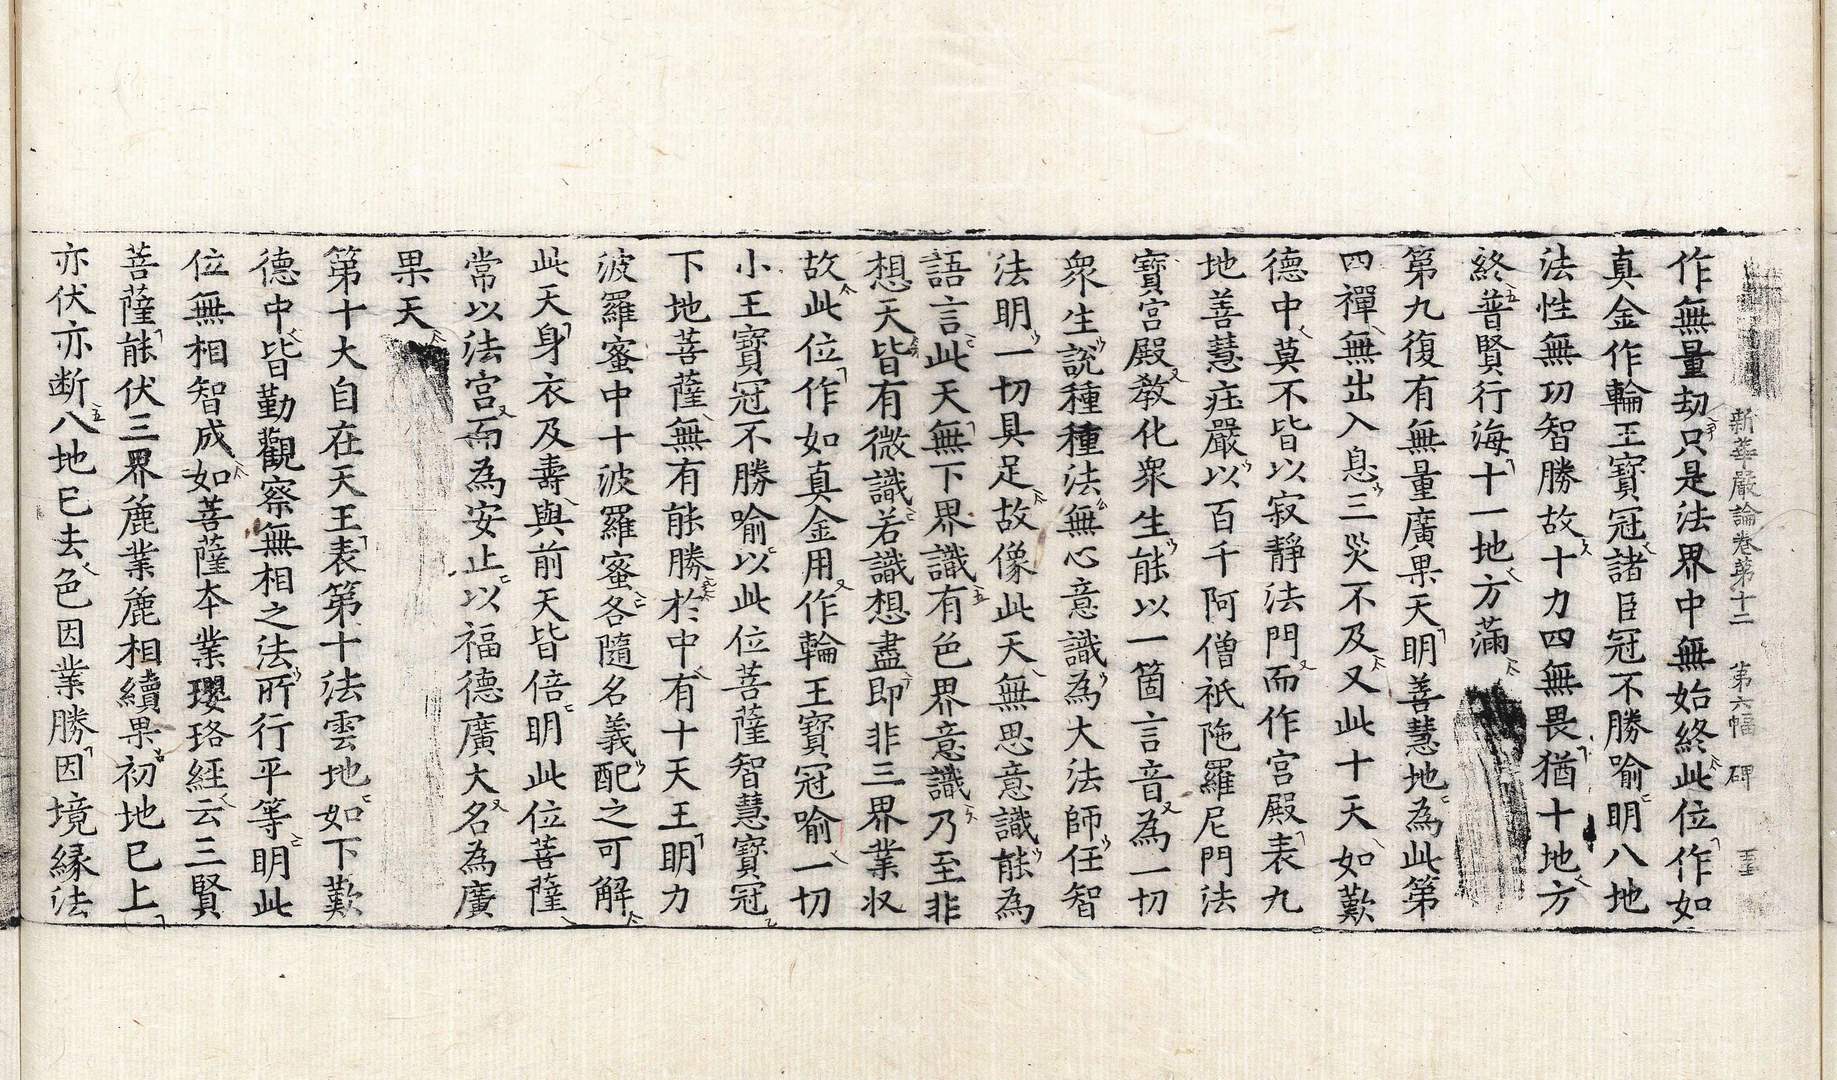 新華嚴論卷第十二 第六幅 碑
作無量劫只是法界中無始終此位作如
真金作輪王寶冠諸臣冠不勝喻明八地
法性無功智勝故十力四無畏猶十地方
終普賢行海十一地方滿
第九復有無量廣果天明善慧地為此第
四禪無出入息三災不及又此十天如歎
德中莫不皆以寂靜法門而作宮殿表九
地善慧莊嚴以百千阿僧祇陁羅尼門法
寶宮殿教化衆生能以一箇言音為一切
衆生說種種法無心意識為大法師任智
法明一切具足故像此天無思意識能為
語言此天無下界識有色界意識乃至非
想天皆有微識若識想盡即非三界業收
故此位作如真金用作輪王寶冠喻一切
小王寶冠不勝喻以此位菩薩智慧寶冠
下地菩薩無有能勝於中有十天王明力
波羅蜜中十波羅蜜各隨名義配之可解
此天身衣及壽與前天皆倍明此位菩薩
常以法宮而為安止以福德廣大名為廣
果天
第十大自在天王表第十法雲地如下歎
德中皆勤觀察無相之法所行平等明此
位無相智成如菩薩夲業瓔珞經云三賢
菩薩能伏三界麁業麁相續果初地巳上
亦伏亦断八地巳去色因業勝因境縁法